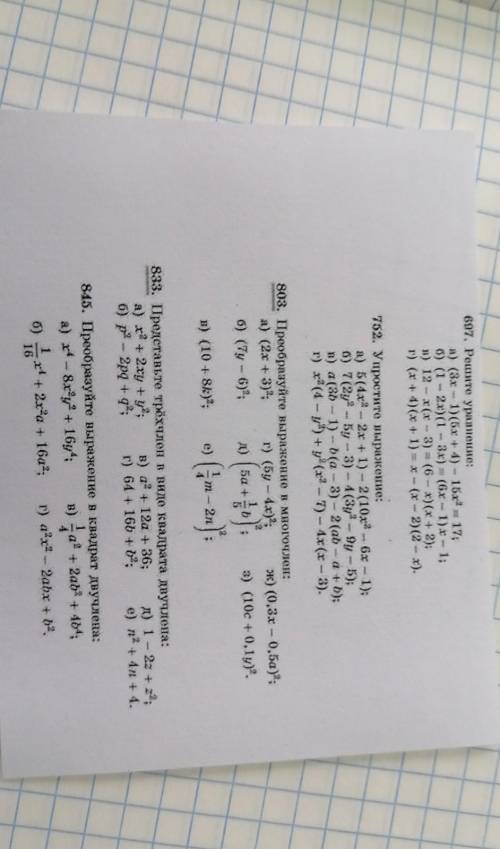 697. Решите уравнение:
а) (3x − 1)(5x + 4) − 15x² = 17;
б) (1 − 2x)(1 − 3x) = (6x − 1)x − 1;
в) 12 − x(x − 3) = (6 − x)(x + 2);
г) (x + 4)(x + 1) = x − (x − 2)(2 − x).
752. Упростите выражение:
а) 5(4x² − 2x + 1) − 2(10x² − 6x − 1);
б) 7(2y² − 5y − 3) − 4(3y² − 9y − 5);
в) a(3b − 1) − b(a − 3) − 2(ab − a + b);
г) x²(4 − y²) + y²(x² − 7) − 4x(x − 3).
803. Преобразуйте выражение в многочлен:
а) (2x + 3)²; г) (5y − 4x)²; ж) (0,3x − 0,5a)²;
б) (7y − 6)²; д) (5a + 1/5 b)²; з) (10c + 0,1y)².
в) (10 + 8k)²; е) (1/4 m − 2n)²;
833. Представьте трёхчлен в виде квадрата двучлена:
а) x² + 2xy + y²; в) a² + 12a + 36; д) 1 − 2z + z²;
б) p² − 2pq + q²; г) 64 + 16b + b²; е) n² + 4n + 4.
845. Преобразуйте выражение в квадрат двучлена:
а) x⁴ − 8x²y² + 16y⁴; в) 1/4 a² + 2ab² + 4b⁴;
б) 1/16 x⁴ + 2x²a + 16a²; г) a²x² − 2abx + b².